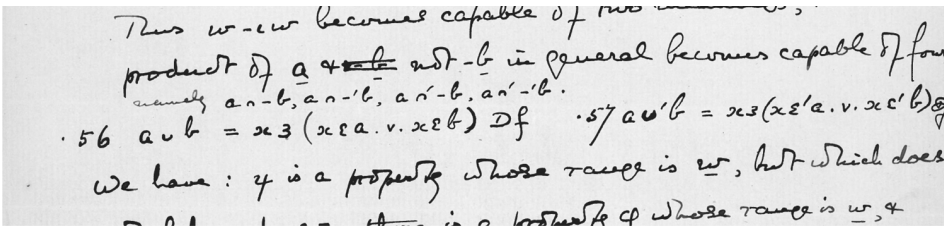 Thus w-ɛw becomes capable of two
product of a & not-b in general becomes capable of four
namely a∩-b, a∩-'b, a∩'-b, a∩'-'b.
·56 a∪b = x∍(xεa.v.xεb) Df ·57 a∪'b = x∍(xε'a.v.xε'b) Df
We have: ψ is a property whose range is w, but which does
is a property φ whose range is w, &